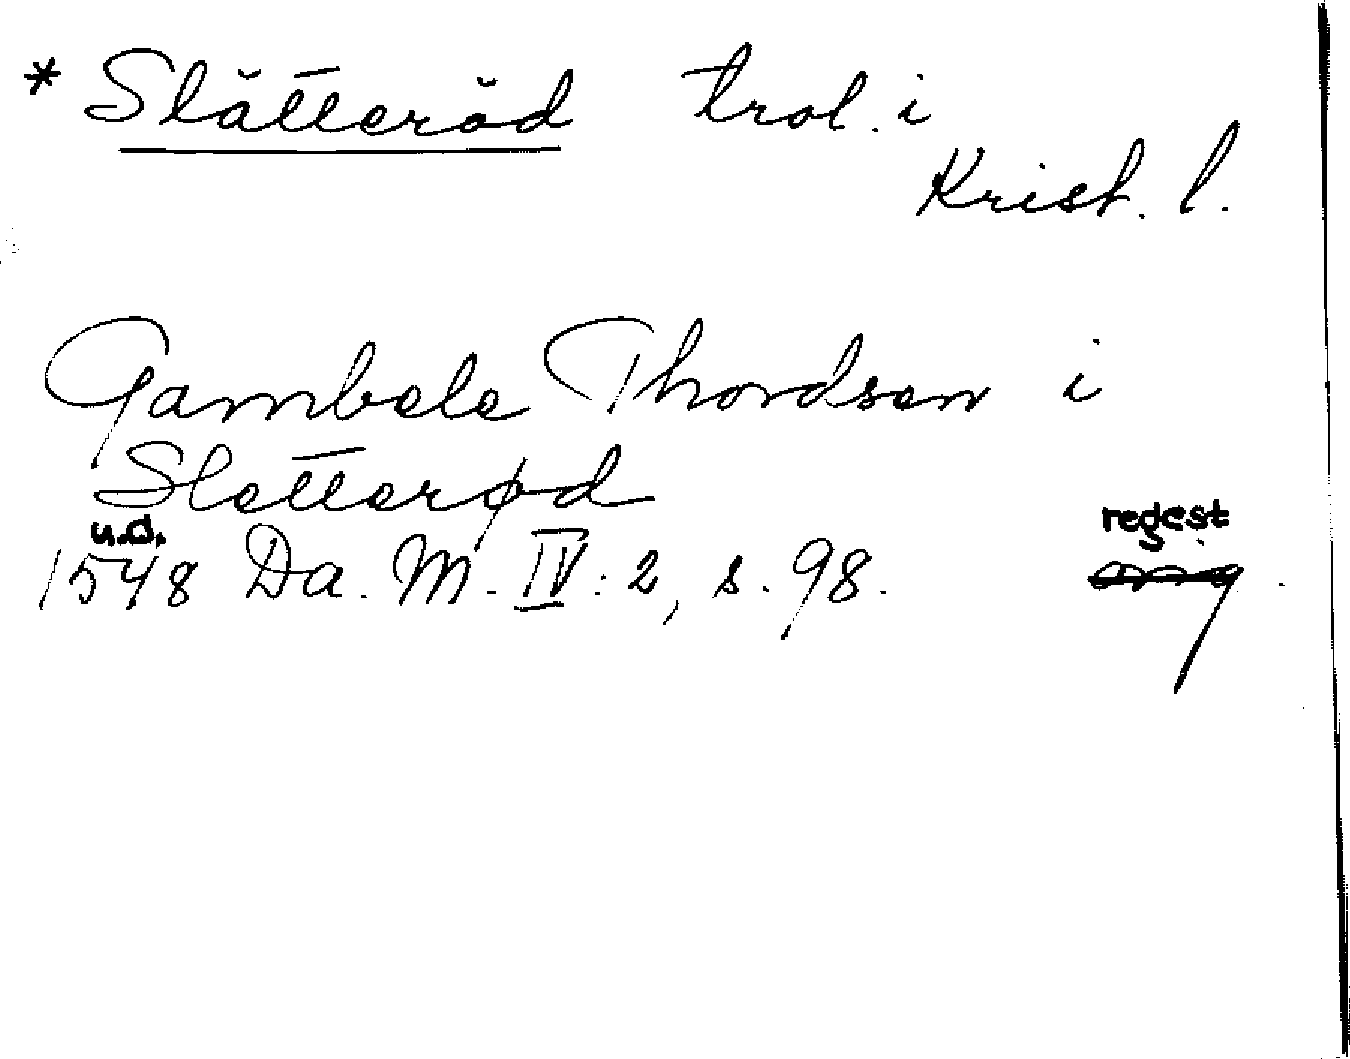 * Slätteröd trol. i
Krist. l.
Gambele Thordsen i
Sletterød
u.d.
1548 Da. M. IV: 2, s. 98. regest